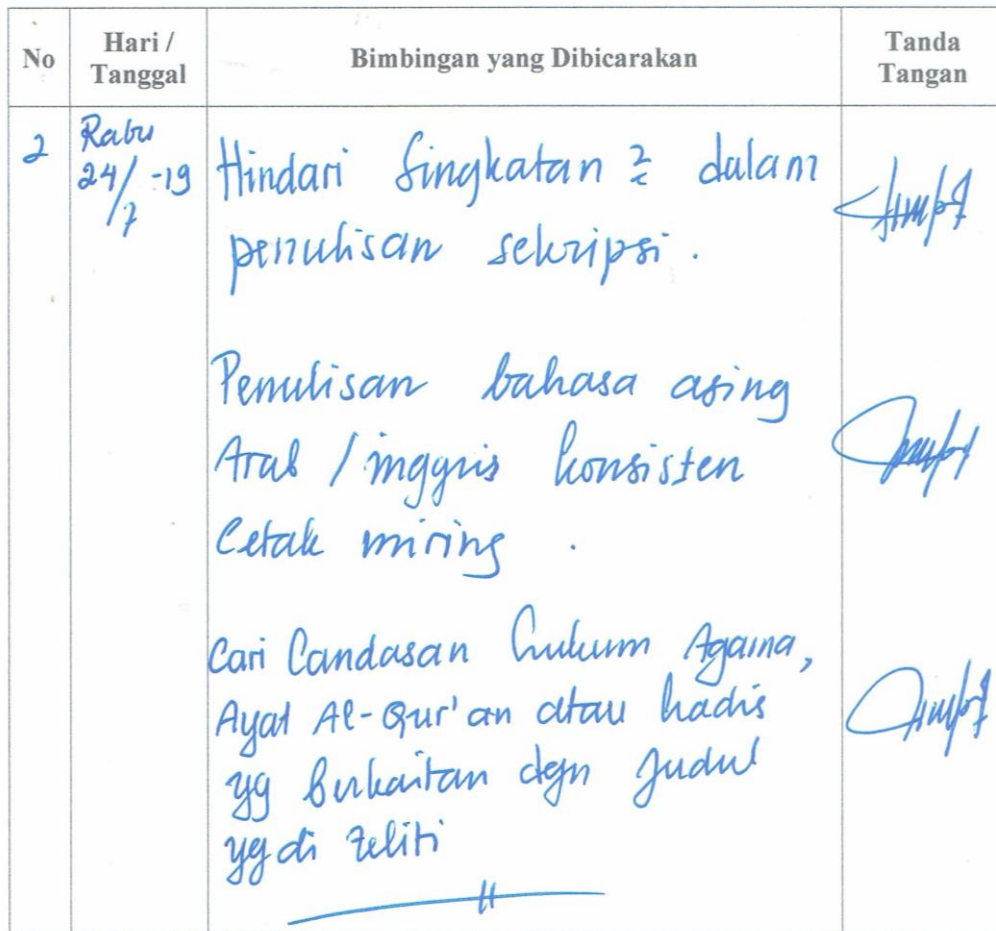 No
Hari /
Tanggal
Bimbingan yang Dibicarakan
Tanda
Tangan
2
Rabu
24/7 -19
Hindari Singkatan 2 dalam
penulisan sekripsi.
Penulisan bahasa asing
Arab / inggris konsisten
Cetak miring .
Cari Landasan hukum Agama,
Ayat Al-Qur'an atau hadis
yg Berkaitan dgn Judul
yg di teliti